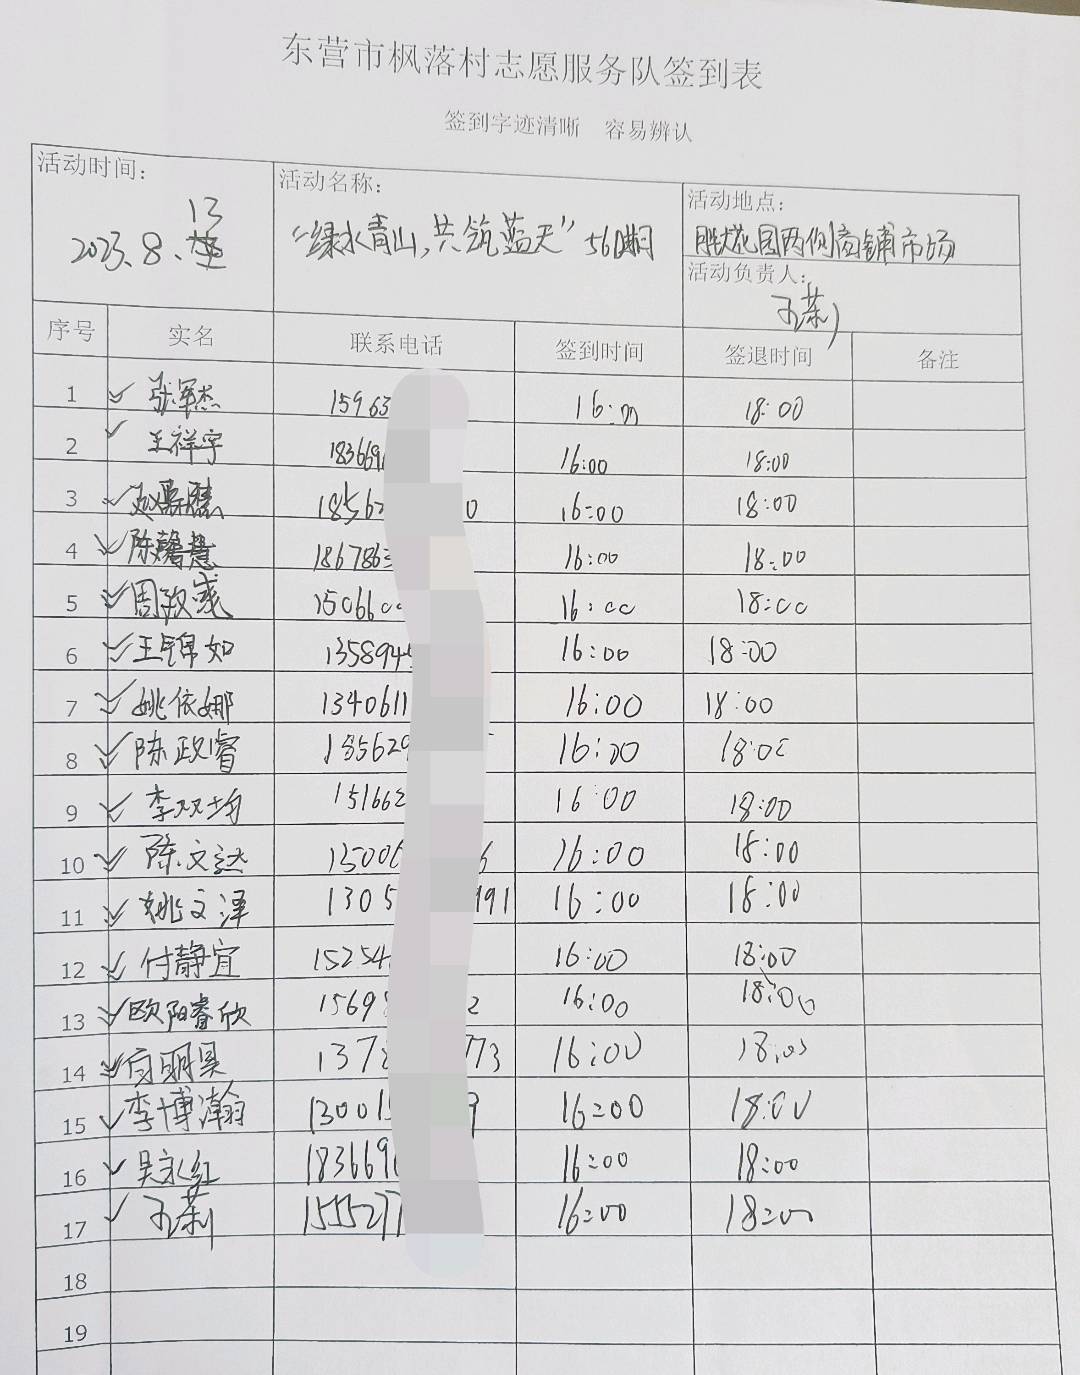 东营市枫落村志愿服务队签到表
签到字迹清晰 容易辨认
活动时间: 2023.8.13
活动名称: “绿水青山,共筑蓝天”56期
活动地点: 胜大花园两侧商铺市场
活动负责人:
序号 实名 联系电话 签到时间 签退时间 备注
1 张军杰 15963 16:00 18:00
2 王祥宇 183669 16:00 18:00
3 1856 0 16:00 18:00
4 陈馨慧 186786 16:00 18:00
5 周致彧 150660 16:00 18:00
6 王锦如 135894 16:00 18:00
7 姚依娜 1340611 16:00 18:00
8 陈政睿 185629 16:00 18:00
9 李双均 151662 16:00 18:00
10 陈文达 1500 16:00 18:00
11 姚文泽 1305 191 16:00 18:00
12 付静宜 15254 16:00 18:00
13 欧阳睿欣 1569 2 16:00 18:00
14 137 773 16:00 18:00
15 李博瀚 13001 9 16:00 18:00
16 吴永红 183669 16:00 18:00
17 1555277 16:00 18:00
18
19